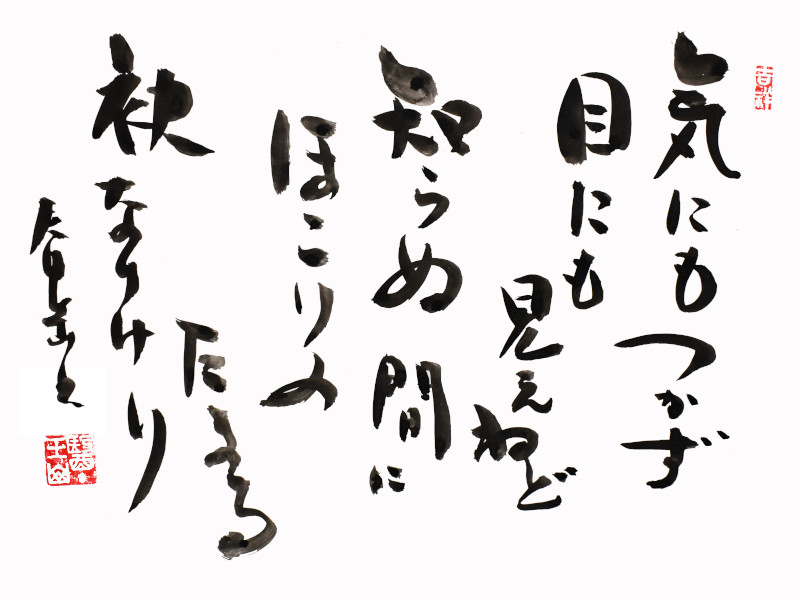 吉祥
気にもつかず
目にも
見えねど
知らぬ間に
ほこりの
たまる
袂なりけり